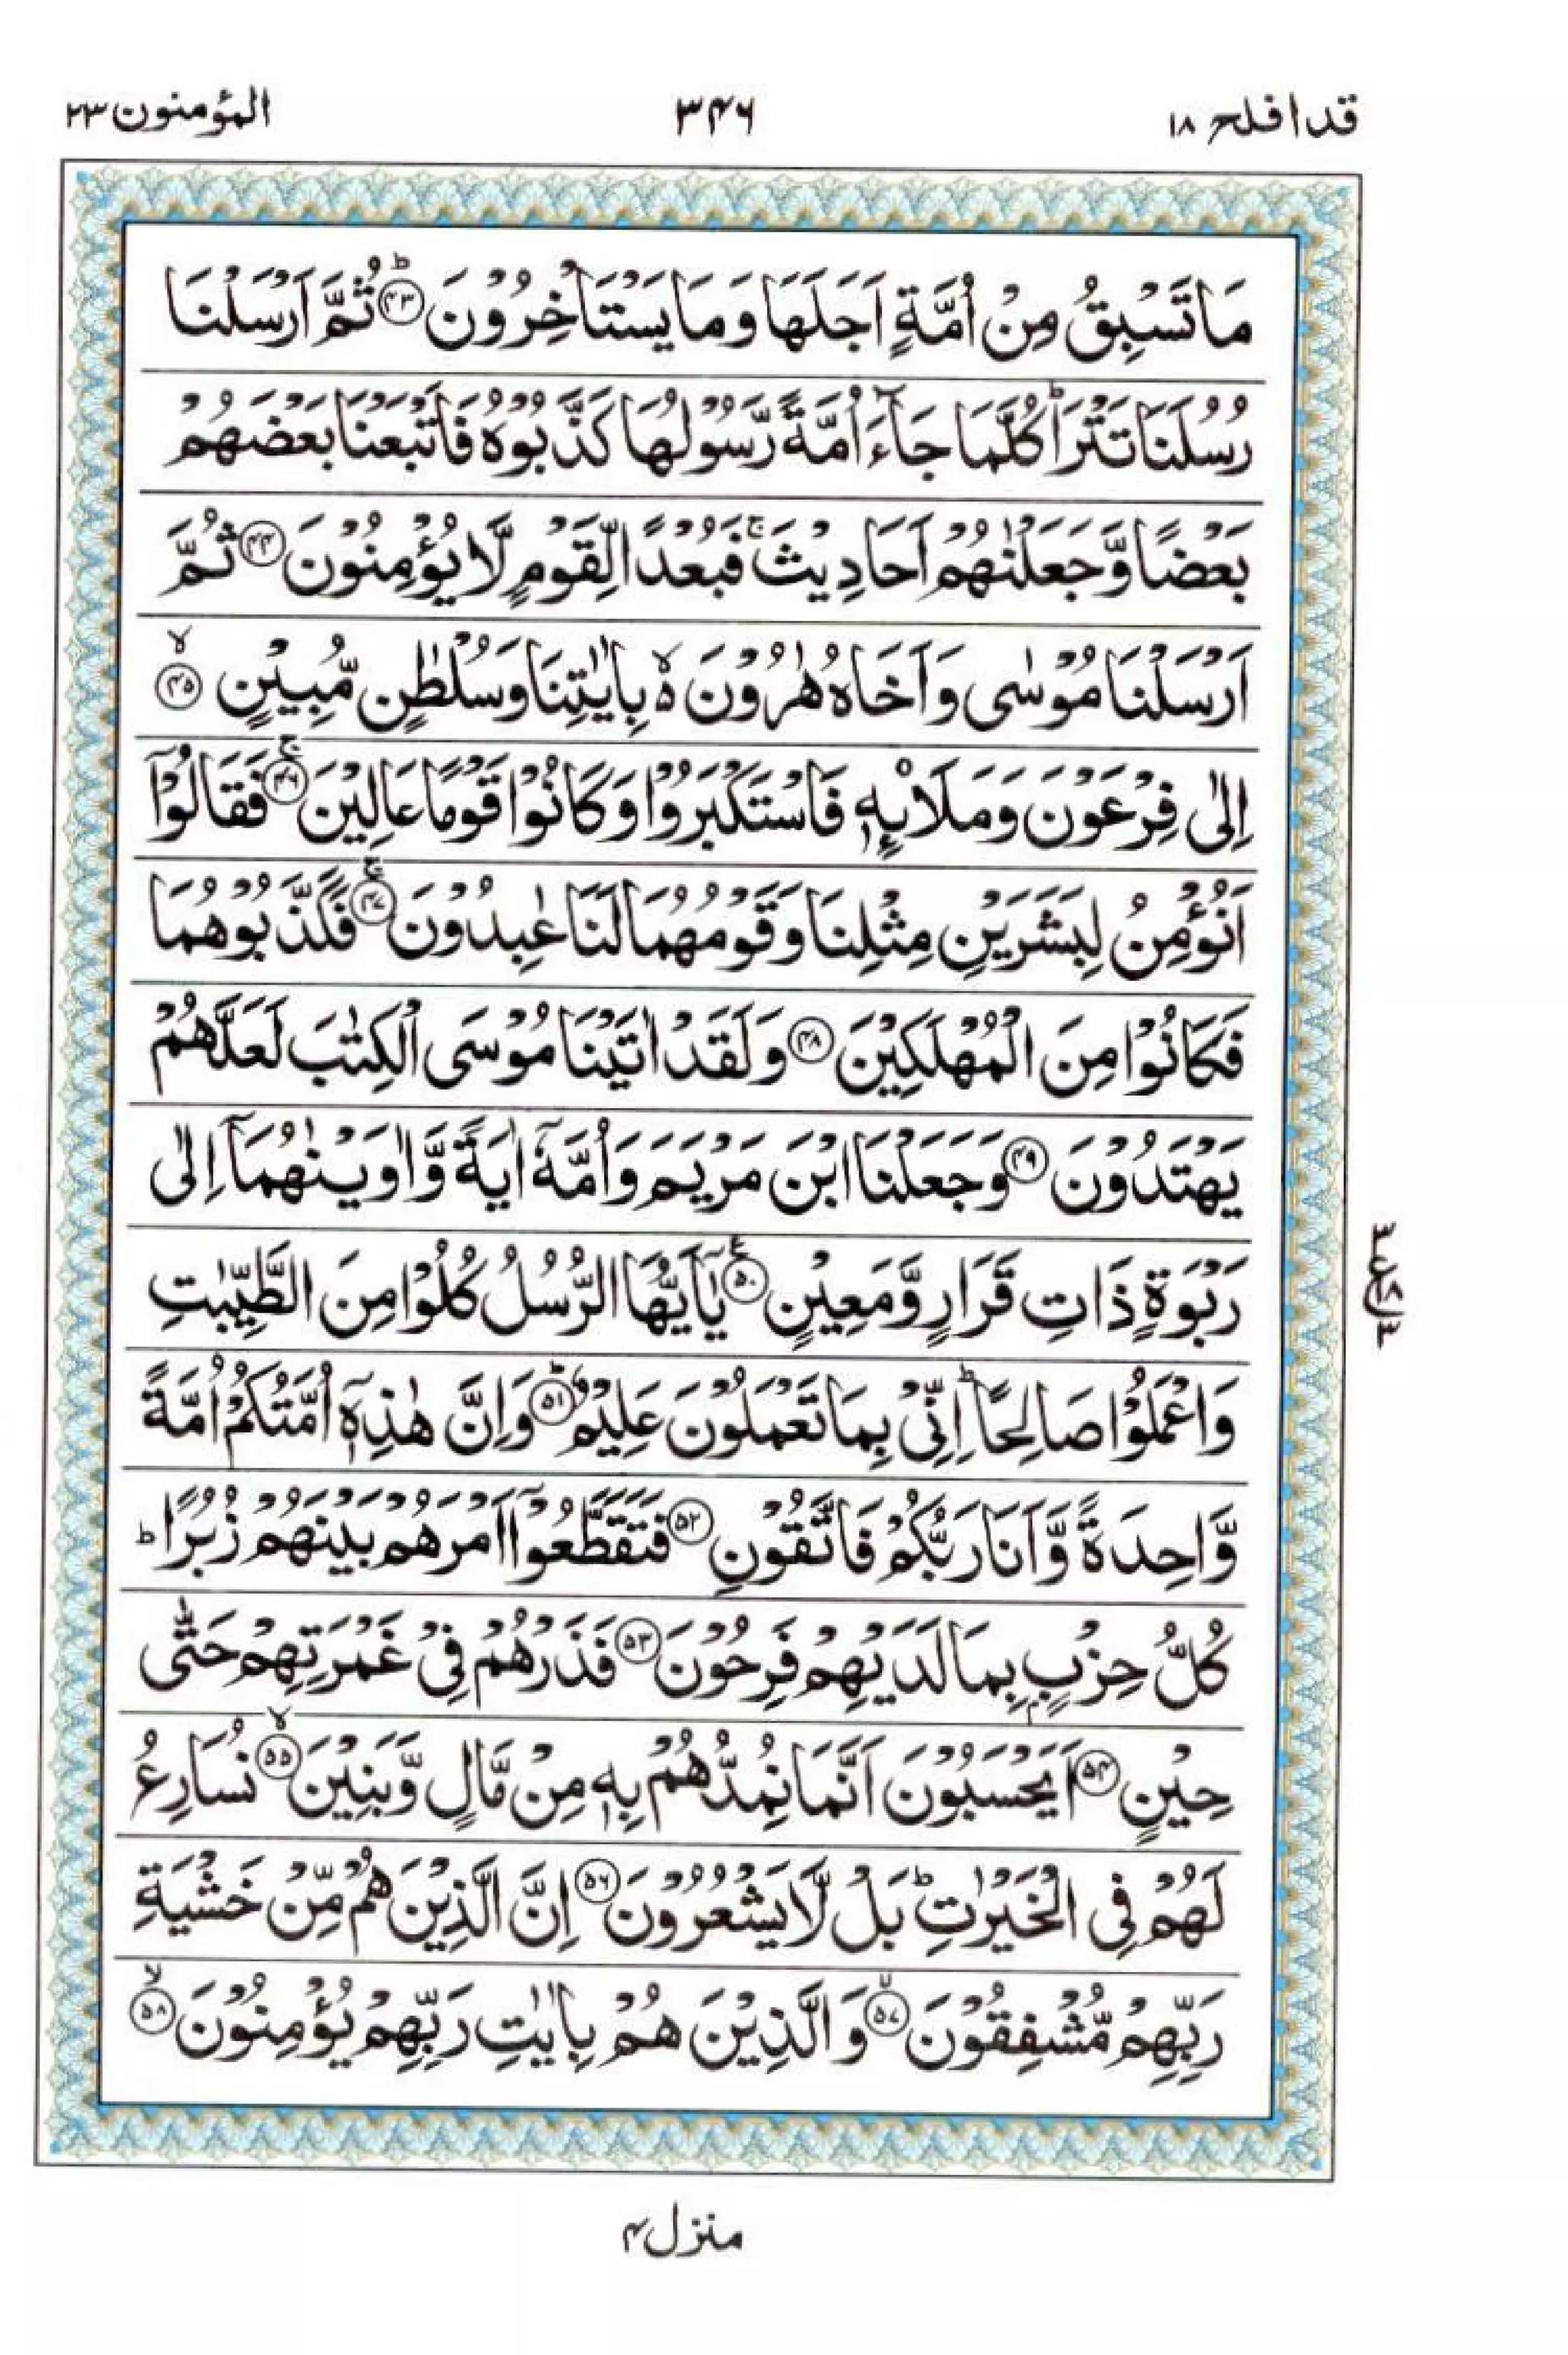 قد افلح ١٨
٣٤٦
المؤمنون ٢٣
مَا تَسْبِقُ مِنْ اُمَّةٍ اَجَلَهَا وَ مَا يَسْتَاْخِرُوْنَ ؕ۴۳ ثُمَّ اَرْسَلْنَا
رُسُلَنَا تَتْرَا ؕ كُلَّمَا جَآءَ اُمَّةً رَّسُوْلُهَا كَذَّبُوْهُ فَاَتْبَعْنَا بَعْضَهُمْ
بَعْضًا وَّ جَعَلْنٰهُمْ اَحَادِيْثَ ۚ فَبُعْدًا لِّقَوْمٍ لَّا يُؤْمِنُوْنَ ۴۴ ثُمَّ
اَرْسَلْنَا مُوْسٰى وَ اَخَاهُ هٰرُوْنَ ۙ۬ بِاٰيٰتِنَا وَ سُلْطٰنٍ مُّبِيْنٍ ۙ۴۵
اِلٰى فِرْعَوْنَ وَ مَلَا۟ىِٕهٖ فَاسْتَكْبَرُوْا وَ كَانُوْا قَوْمًا عَالِيْنَ ۚ۴۶ فَقَالُوْۤا
اَنُؤْمِنُ لِبَشَرَيْنِ مِثْلِنَا وَ قَوْمُهُمَا لَنَا عٰبِدُوْنَ ۚ۴۷ فَكَذَّبُوْهُمَا
فَكَانُوْا مِنَ الْمُهْلَكِيْنَ ۴۸ وَ لَقَدْ اٰتَيْنَا مُوْسَى الْكِتٰبَ لَعَلَّهُمْ
يَهْتَدُوْنَ ۴۹ وَ جَعَلْنَا ابْنَ مَرْيَمَ وَ اُمَّهٗۤ اٰيَةً وَّ اٰوَيْنٰهُمَاۤ اِلٰى
رَبْوَةٍ ذَاتِ قَرَارٍ وَّ مَعِيْنٍ ۵۰ۧ يٰۤاَيُّهَا الرُّسُلُ كُلُوْا مِنَ الطَّيِّبٰتِ
وَ اعْمَلُوْا صَالِحًا ؕ اِنِّيْ بِمَا تَعْمَلُوْنَ عَلِيْمٌ ؕ۵۱ وَ اِنَّ هٰذِهٖۤ اُمَّتُكُمْ اُمَّةً
وَّاحِدَةً وَّ اَنَا رَبُّكُمْ فَاتَّقُوْنِ ۵۲ فَتَقَطَّعُوْۤا اَمْرَهُمْ بَيْنَهُمْ زُبُرًا ؕ
كُلُّ حِزْبٍۭ بِمَا لَدَيْهِمْ فَرِحُوْنَ ۵۳ فَذَرْهُمْ فِيْ غَمْرَتِهِمْ حَتّٰى
حِيْنٍ ۵۴ اَيَحْسَبُوْنَ اَنَّمَا نُمِدُّهُمْ بِهٖ مِنْ مَّالٍ وَّ بَنِيْنَ ۙ۵۵ نُسَارِعُ
لَهُمْ فِي الْخَيْرٰتِ ؕ بَلْ لَّا يَشْعُرُوْنَ ۵۶ اِنَّ الَّذِيْنَ هُمْ مِّنْ خَشْيَةِ
رَبِّهِمْ مُّشْفِقُوْنَ ۙ۵۷ وَ الَّذِيْنَ هُمْ بِاٰيٰتِ رَبِّهِمْ يُؤْمِنُوْنَ ۙ۵۸
٣
ع
١٨
٣
منزل ۴